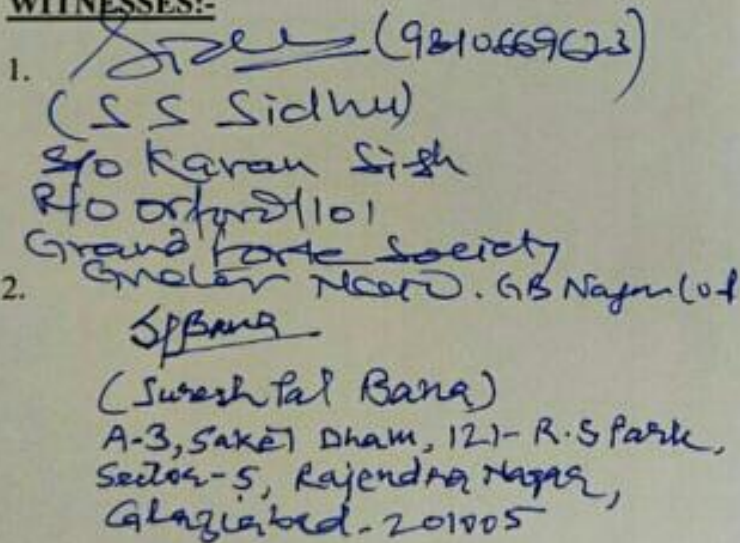 WITNESSES:-
1. (9810669623)
(S S Sidhu)
S/o Karan Singh
R/o Oxford/101
Grand Forte Society
Greater Noida. GB Nagar (U.P
2. SPBana
(Suresh Pal Bana)
A-3, Saket Dham, 121- R.S Park,
Sector-5, Rajendra Nagar,
Ghaziabad-201005